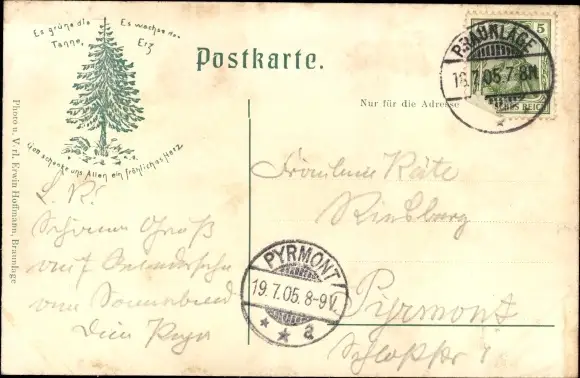 Es grüne die
Tanne,
Es wachse das
Erz
Gott schenke uns Allen ein fröhliches Herz
Postkarte.
Nur für die Adresse
BRAUNLAGE
18.7.05.7-8N.
5
REICH
Photo u. V rl. Erwin Hoffmann, Braunlage
L. K!
Schönen Gruß
auf
vom
Dein
Fräulein Käte
Rinsberg
Pyrmont
Schloßstr 1
PYRMONT
19.7.05.8-9V.
* * a